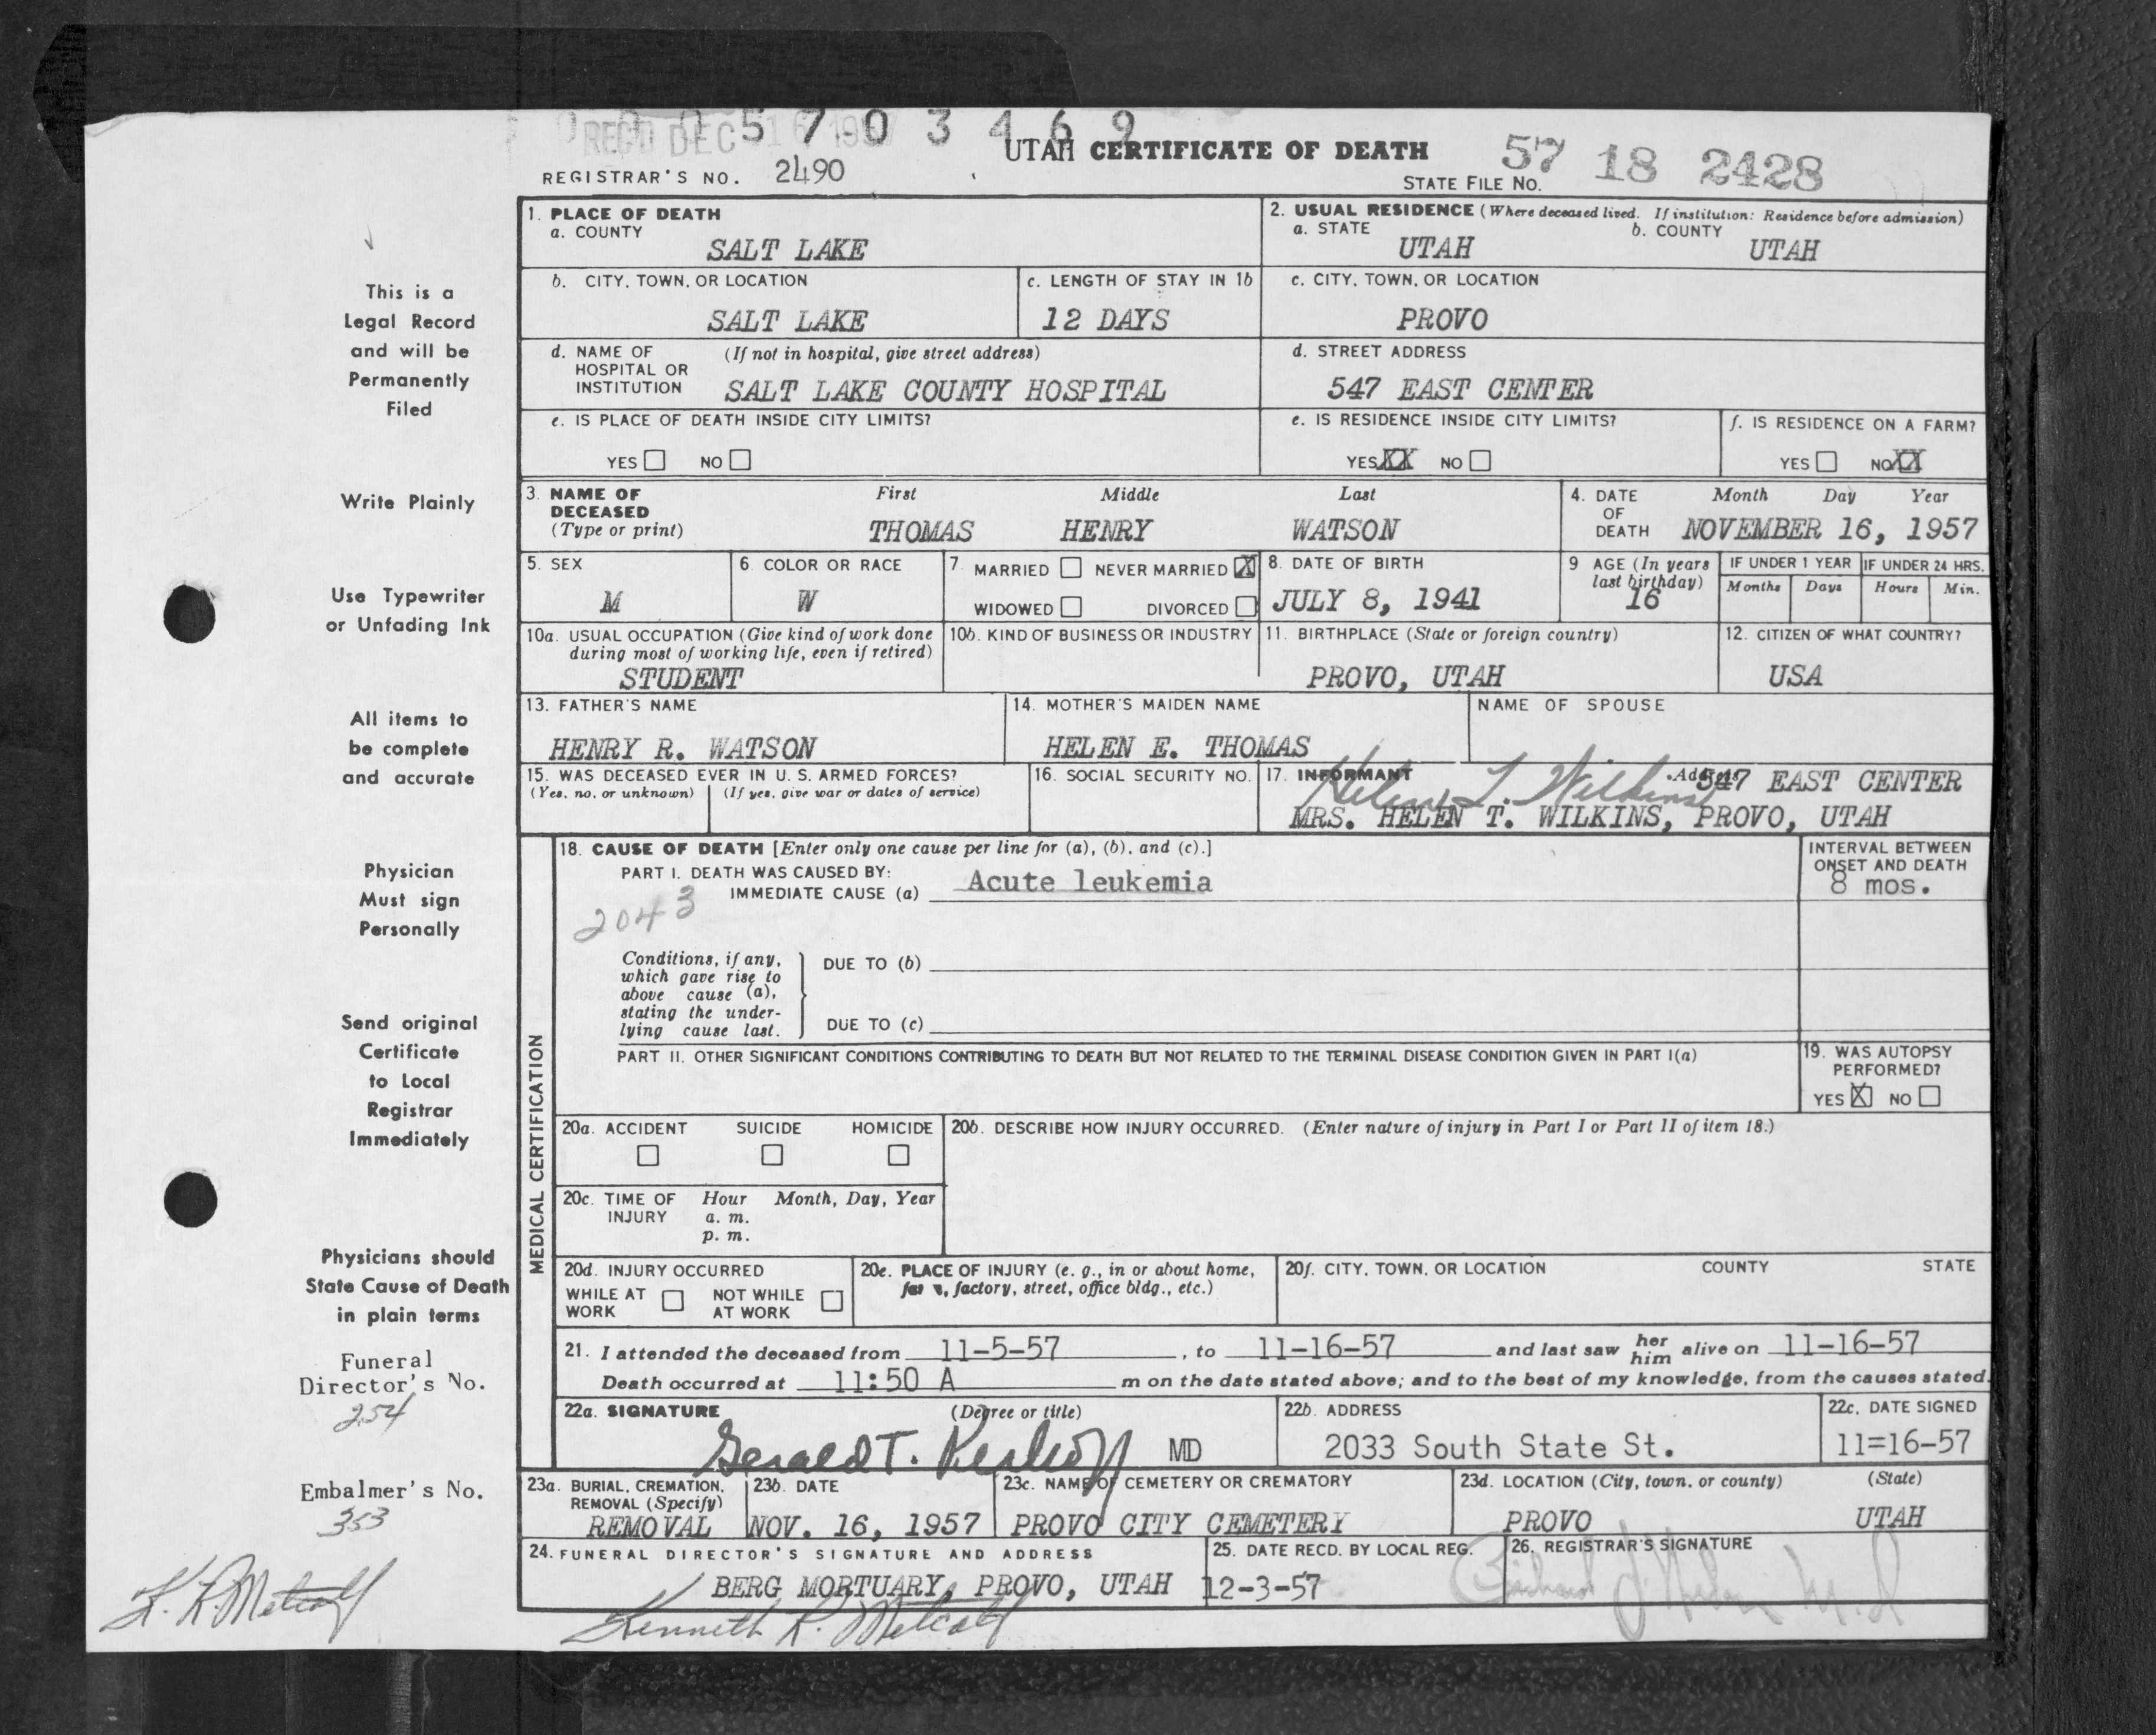 REC'D DEC 16 195
0 0 0 5 7 0 3 4 6 9
UTAH CERTIFICATE OF DEATH
REGISTRAR'S NO. 2490
STATE FILE NO. 57 18 2428
This is a
Legal Record
and will be
Permanently
Filed
Write Plainly
Use Typewriter
or Unfading Ink
All items to
be complete
and accurate
Physician
Must sign
Personally
Send original
Certificate
to Local
Registrar
Immediately
Physicians should
State Cause of Death
in plain terms
Funeral
Director's No.
254
Embalmer's No.
353
K. R. Metcalf
1. PLACE OF DEATH
a. COUNTY
SALT LAKE
2. USUAL RESIDENCE (Where deceased lived. If institution: Residence before admission)
a. STATE
UTAH
b. COUNTY
UTAH
b. CITY, TOWN, OR LOCATION
SALT LAKE
c. LENGTH OF STAY IN 1b
12 DAYS
c. CITY, TOWN, OR LOCATION
PROVO
d. NAME OF (If not in hospital, give street address)
HOSPITAL OR
INSTITUTION SALT LAKE COUNTY HOSPITAL
d. STREET ADDRESS
547 EAST CENTER
e. IS PLACE OF DEATH INSIDE CITY LIMITS?
YES NO
e. IS RESIDENCE INSIDE CITY LIMITS?
YES XX NO
f. IS RESIDENCE ON A FARM?
YES NO XX
3. NAME OF DECEASED
(Type or print)
First Middle Last
THOMAS HENRY WATSON
4. DATE OF DEATH
Month Day Year
NOVEMBER 16, 1957
5. SEX
M
6. COLOR OR RACE
W
7. MARRIED NEVER MARRIED X
WIDOWED DIVORCED
8. DATE OF BIRTH
JULY 8, 1941
9 AGE (In years
last birthday)
16
IF UNDER 1 YEAR
Months Days
IF UNDER 24 HRS.
Hours Min.
10a. USUAL OCCUPATION (Give kind of work done
during most of working life, even if retired)
STUDENT
10b. KIND OF BUSINESS OR INDUSTRY
11. BIRTHPLACE (State or foreign country)
PROVO, UTAH
12. CITIZEN OF WHAT COUNTRY?
USA
13. FATHER'S NAME
HENRY R. WATSON
14. MOTHER'S MAIDEN NAME
HELEN E. THOMAS
NAME OF SPOUSE
15. WAS DECEASED EVER IN U. S. ARMED FORCES?
(Yes, no, or unknown) (If yes, give war or dates of service)
16. SOCIAL SECURITY NO.
17. INFORMANT Address 547 EAST CENTER
Helen T. Wilkins
MRS. HELEN T. WILKINS, PROVO, UTAH
MEDICAL CERTIFICATION
18. CAUSE OF DEATH [Enter only one cause per line for (a), (b), and (c).]
PART I. DEATH WAS CAUSED BY:
IMMEDIATE CAUSE (a) Acute leukemia
INTERVAL BETWEEN
ONSET AND DEATH
8 mos.
2043
Conditions, if any,
which gave rise to
above cause (a),
stating the under-
lying cause last.
DUE TO (b)
DUE TO (c)
PART II. OTHER SIGNIFICANT CONDITIONS CONTRIBUTING TO DEATH BUT NOT RELATED TO THE TERMINAL DISEASE CONDITION GIVEN IN PART I(a)
19. WAS AUTOPSY
PERFORMED?
YES X NO
20a. ACCIDENT SUICIDE HOMICIDE
20b. DESCRIBE HOW INJURY OCCURRED. (Enter nature of injury in Part I or Part II of item 18.)
20c. TIME OF INJURY
Hour Month, Day, Year
a. m.
p. m.
20d. INJURY OCCURRED
WHILE AT WORK NOT WHILE AT WORK
20e. PLACE OF INJURY (e. g., in or about home,
factory, street, office bldg., etc.)
20f. CITY, TOWN, OR LOCATION COUNTY STATE
21. I attended the deceased from 11-5-57, to 11-16-57 and last saw her him alive on 11-16-57
Death occurred at 11:50 A m on the date stated above; and to the best of my knowledge, from the causes stated.
22a. SIGNATURE (Degree or title)
Gerald T. MD
22b. ADDRESS
2033 South State St.
22c. DATE SIGNED
11=16-57
23a. BURIAL, CREMATION,
REMOVAL (Specify)
REMOVAL
23b. DATE
NOV. 16, 1957
23c. NAME OF CEMETERY OR CREMATORY
PROVO CITY CEMETERY
23d. LOCATION (City, town, or county) (State)
PROVO UTAH
24. FUNERAL DIRECTOR'S SIGNATURE AND ADDRESS
BERG MORTUARY, PROVO, UTAH
Kenneth R. Metcalf
25. DATE RECD. BY LOCAL REG.
12-3-57
26. REGISTRAR'S SIGNATURE